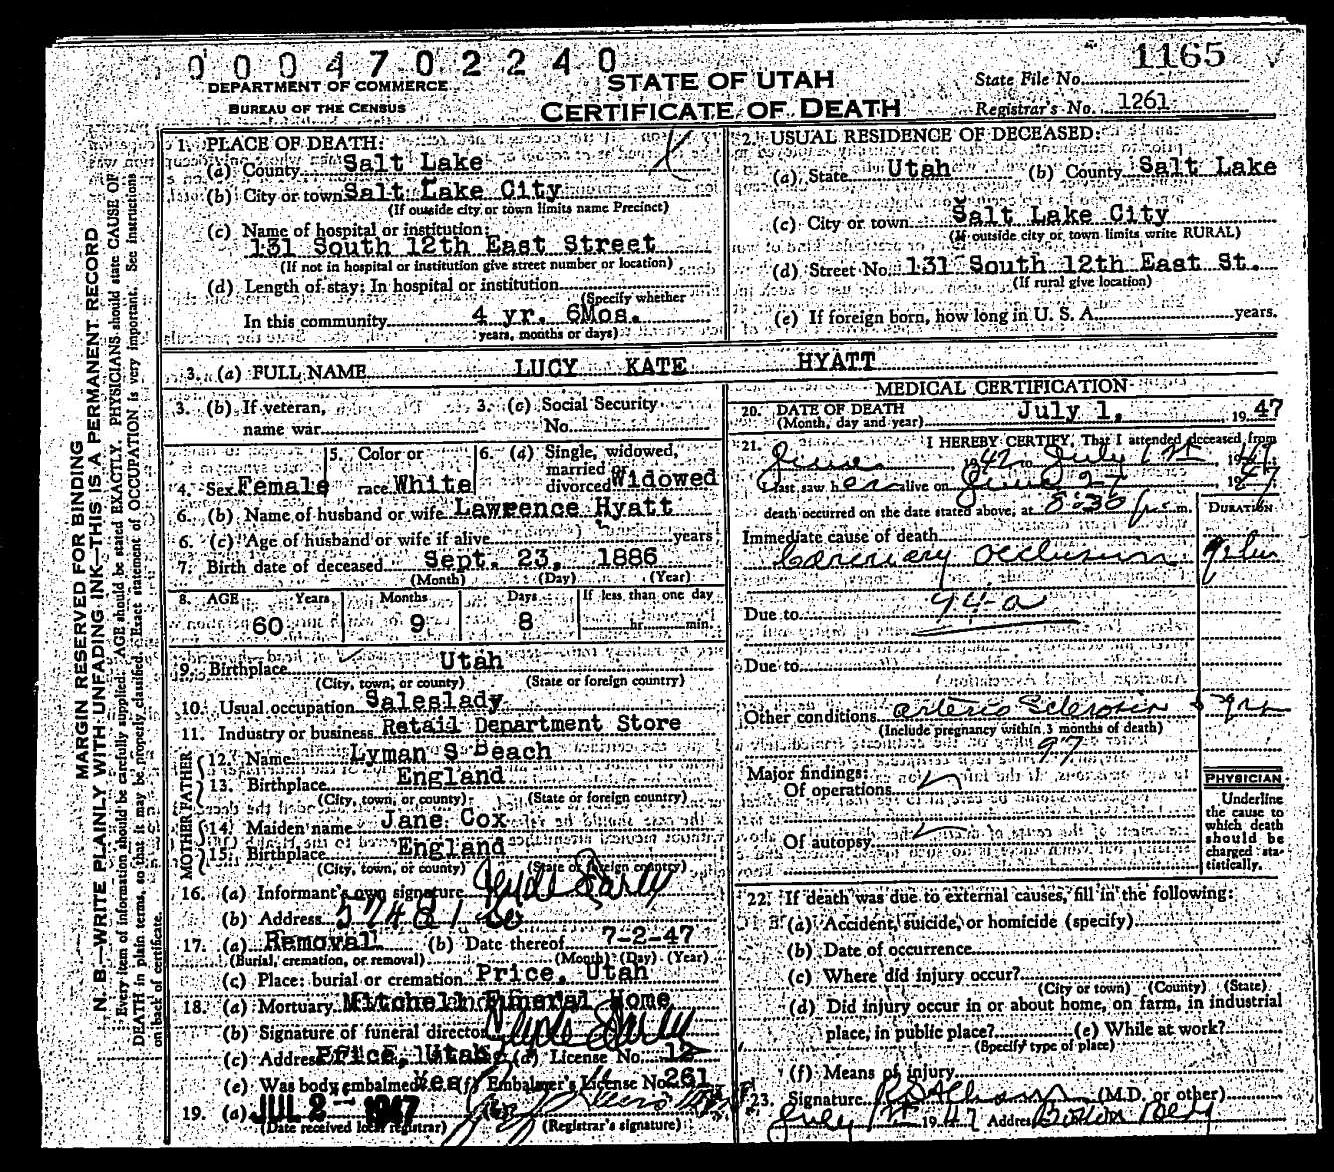 0004702240
DEPARTMENT OF COMMERCE
BUREAU OF THE CENSUS
STATE OF UTAH
CERTIFICATE OF DEATH
State File No. 1165
Registrar's No. 1261
MARGIN RESERVED FOR BINDING
N. B.—WRITE PLAINLY WITH UNFADING INK—THIS IS A PERMANENT RECORD
Every item of information should be carefully supplied. AGE should be stated EXACTLY. PHYSICIANS should state CAUSE OF
DEATH in plain terms, so that it may be properly classified. Exact statement of OCCUPATION is very important. See instructions
on back of certificate.
1. PLACE OF DEATH:
(a) County Salt Lake
(b) City or town Salt Lake City
(If outside city or town limits name Precinct)
(c) Name of hospital or institution:
131 South 12th East Street
(If not in hospital or institution give street number or location)
(d) Length of stay: In hospital or institution
(Specify whether
In this community 4 yr. 6Mos.
years, months or days)
2. USUAL RESIDENCE OF DECEASED:
(a) State Utah (b) County Salt Lake
(c) City or town Salt Lake City
(If outside city or town limits write RURAL)
(d) Street No. 131 South 12th East St.
(If rural give location)
(e) If foreign born, how long in U. S. A. years.
3. (a) FULL NAME LUCY KATE HYATT
3. (b) If veteran, name war
3. (c) Social Security No.
4. Sex Female
5. Color or race White
6. (a) Single, widowed, married or divorced Widowed
6. (b) Name of husband or wife Lawrence Hyatt
6. (c) Age of husband or wife if alive years
7. Birth date of deceased Sept. 23, 1886
(Month) (Day) (Year)
8. AGE Years Months Days If less than one day
60 9 8 hr. min.
9. Birthplace Utah
(City, town, or county) (State or foreign country)
10. Usual occupation Saleslady
11. Industry or business Retail Department Store
FATHER
12. Name Lyman S Beach
13. Birthplace England
(City, town, or county) (State or foreign country)
MOTHER
14. Maiden name Jane Cox
15. Birthplace England
(City, town, or county) (State or foreign country)
16. (a) Informant's own signature
(b) Address
17. (a) Removal (b) Date thereof 7-2-47
(Burial, cremation, or removal) (Month) (Day) (Year)
(c) Place: burial or cremation Price, Utah
18. (a) Mortuary Mitchell Funeral Home
(b) Signature of funeral director
(c) Address Price, Utah (d) License No. 12
(e) Was body embalmed Yea (f) Embalmer's License No. 261
19. (a) JUL 2 - 1947 (b)
(Date received local registrar) (Registrar's signature)
MEDICAL CERTIFICATION
20. DATE OF DEATH July 1, 1947
(Month, day and year)
21. I HEREBY CERTIFY, That I attended deceased from
June 1942 to July 1st 1947
I last saw her alive on June 27 1947
death occurred on the date stated above, at 8:30 p.m.
DURATION
Immediate cause of death
Coronary occlusion
Due to 94-a
Due to
Other conditions arterio Sclerosis
(Include pregnancy within 3 months of death)
97
Major findings:
Of operations
Of autopsy
PHYSICIAN
Underline
the cause to
which death
should be
charged sta-
tistically.
22. If death was due to external causes, fill in the following:
(a) Accident, suicide, or homicide (specify)
(b) Date of occurrence
(c) Where did injury occur?
(City or town) (County) (State)
(d) Did injury occur in or about home, on farm, in industrial
place, in public place? (e) While at work?
(Specify type of place)
(f) Means of injury
23. Signature (M.D. or other)
July 1st 1947 Address Boston Bldg